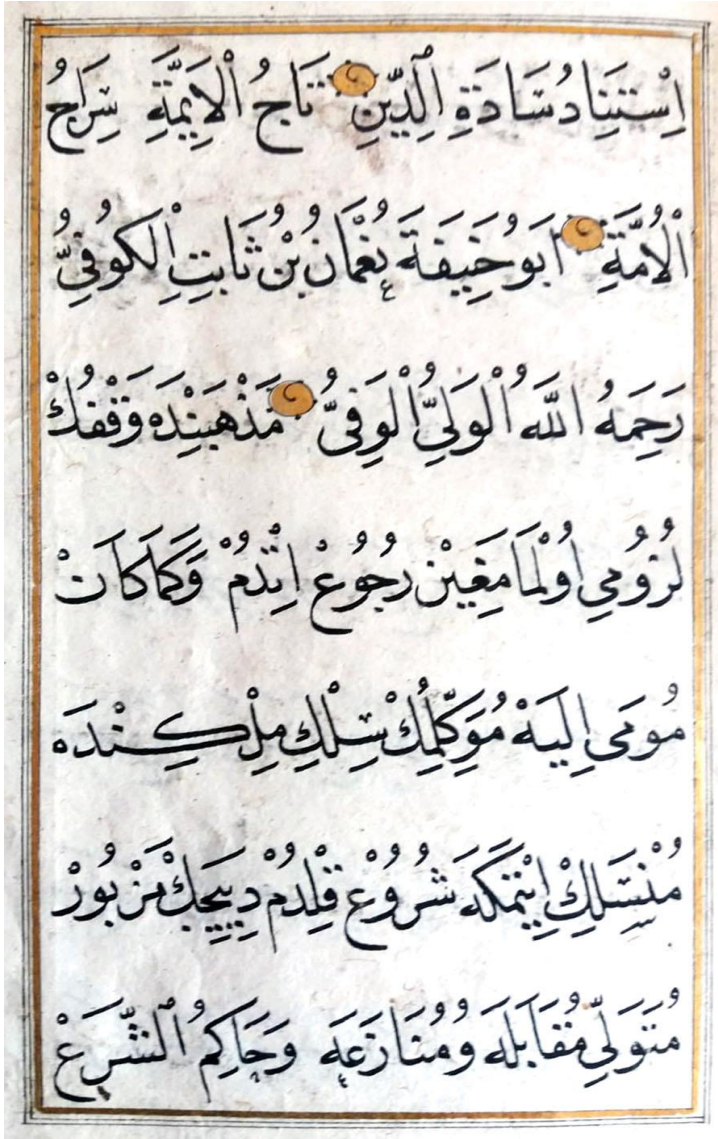 اِسْتِنَادُ سَادَةِ الدِّينِ تَاجُ الْاَئِمَّةِ سِرَاجُ
الْاُمَّةِ اَبُو حَنِيفَةَ نُعْمَانُ بْنُ ثَابِتِ الْكُوفِيُّ
رَحِمَهُ اللّٰهُ الْوَلِيُّ الْوَفِىُّ مَذْهَبِنْدَه وَقْفُكْ
لُزُومِي اُولْمَامَغِيْن رُجُوعْ اِتْدُمْ وَكَمَاكَانَ
مُومَى اِلَيْهْ مُوَكِّلُمِكْ سِلْكِ مِلْكِنْدَه
مُنْسَلِكْ اِيْتْمَكَه شُرُوعْ قِلْدُمْ دِيِيجَكْ مَزْبُورْ
مُتَوَلِّي مُقَابَلَه وُ مُنَازَعَه وَحَاكِمُ الشَّرْعْ